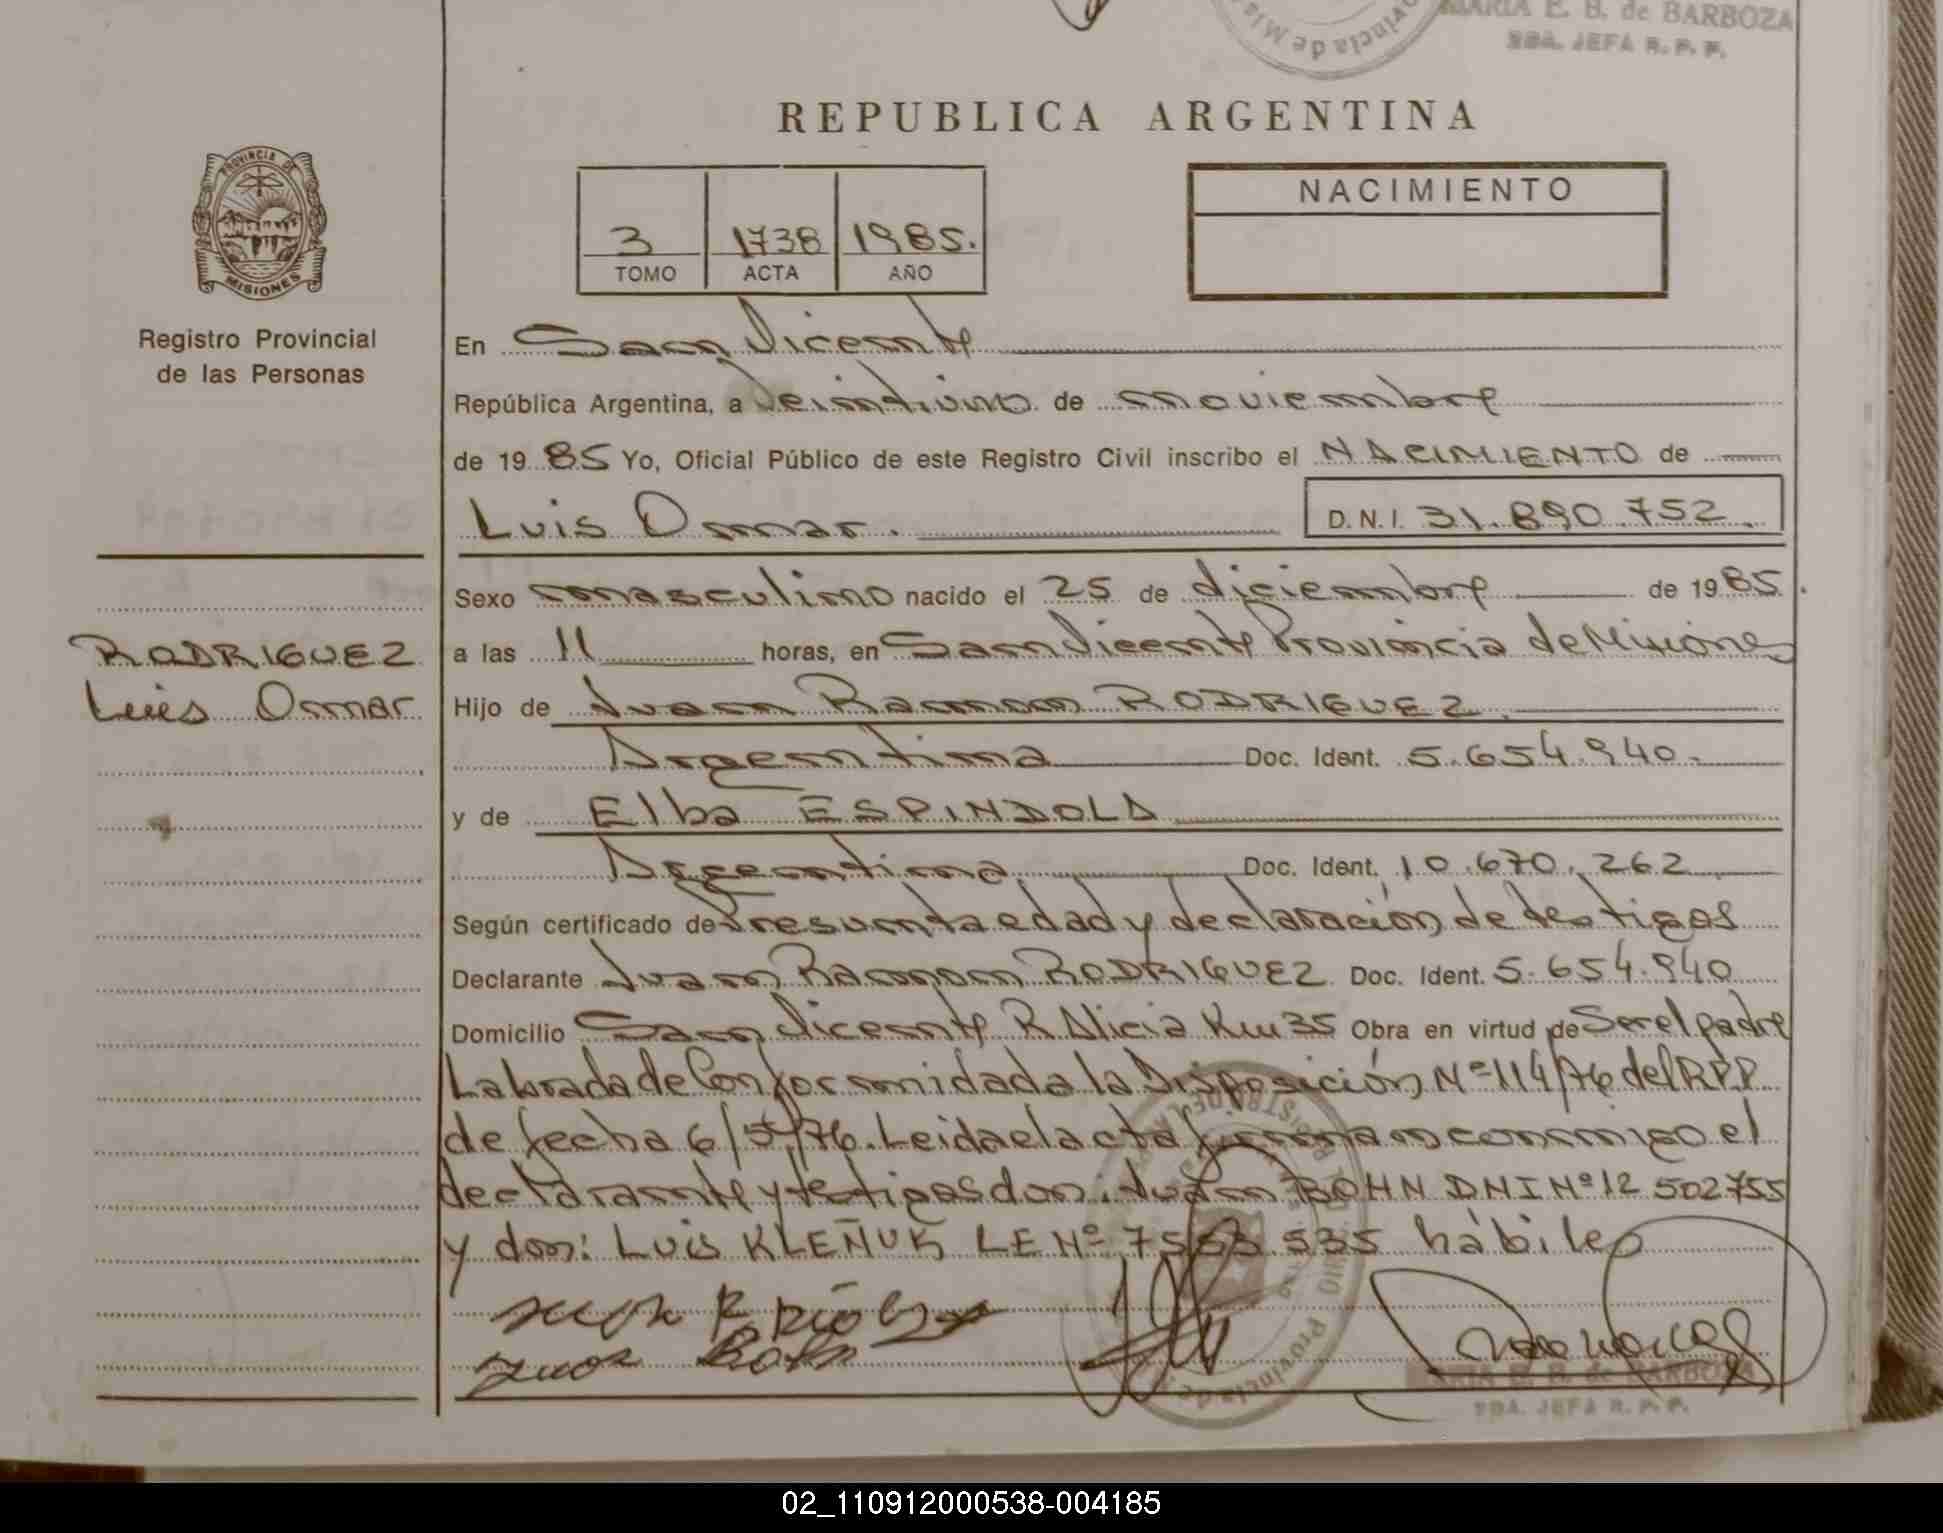 MARIA E. B. de BARBOZA
2DA. JEFA R. P. P.
Provincia de Mis
REPUBLICA ARGENTINA
PROVINCIA DE
MISIONES
Registro Provincial
de las Personas
3 1738 1985.
TOMO ACTA AÑO
NACIMIENTO
En San Vicente
República Argentina, a veintiuno de noviembre
de 1985 Yo, Oficial Público de este Registro Civil inscribo el NACIMIENTO de
Luis Omar. D.N.I. 31.890.752.
RODRIGUEZ
Luis Omar
Sexo masculino nacido el 25 de diciembre de 1985.
a las 11 horas, en San Vicente Provincia de Misiones
Hijo de Juan Ramon RODRIGUEZ.
Argentina Doc. Ident. 5.654.940.
y de Elba ESPINDOLA
Argentina Doc. Ident. 10.670.262
Según certificado de Presunta edad y declaración de testigos
Declarante Juan Ramon RODRIGUEZ Doc. Ident. 5.654.940
Domicilio San Vicente R. Alicia Km 35 Obra en virtud de Ser el padre
Labrada de Conformidad a la Disposición Nº 114/76 del R.P.P.
de fecha 6/5/76. Leida el acta firman conmigo el
declarante y testigos don: Juan BOHN DNI Nº 12 502755
y don: Luis KLEÑUK LE Nº 7553.535 hábiles
Provincia de
MARIA E. B. de BARBOZA
2DA. JEFA R. P. P.
02_110912000538-004185